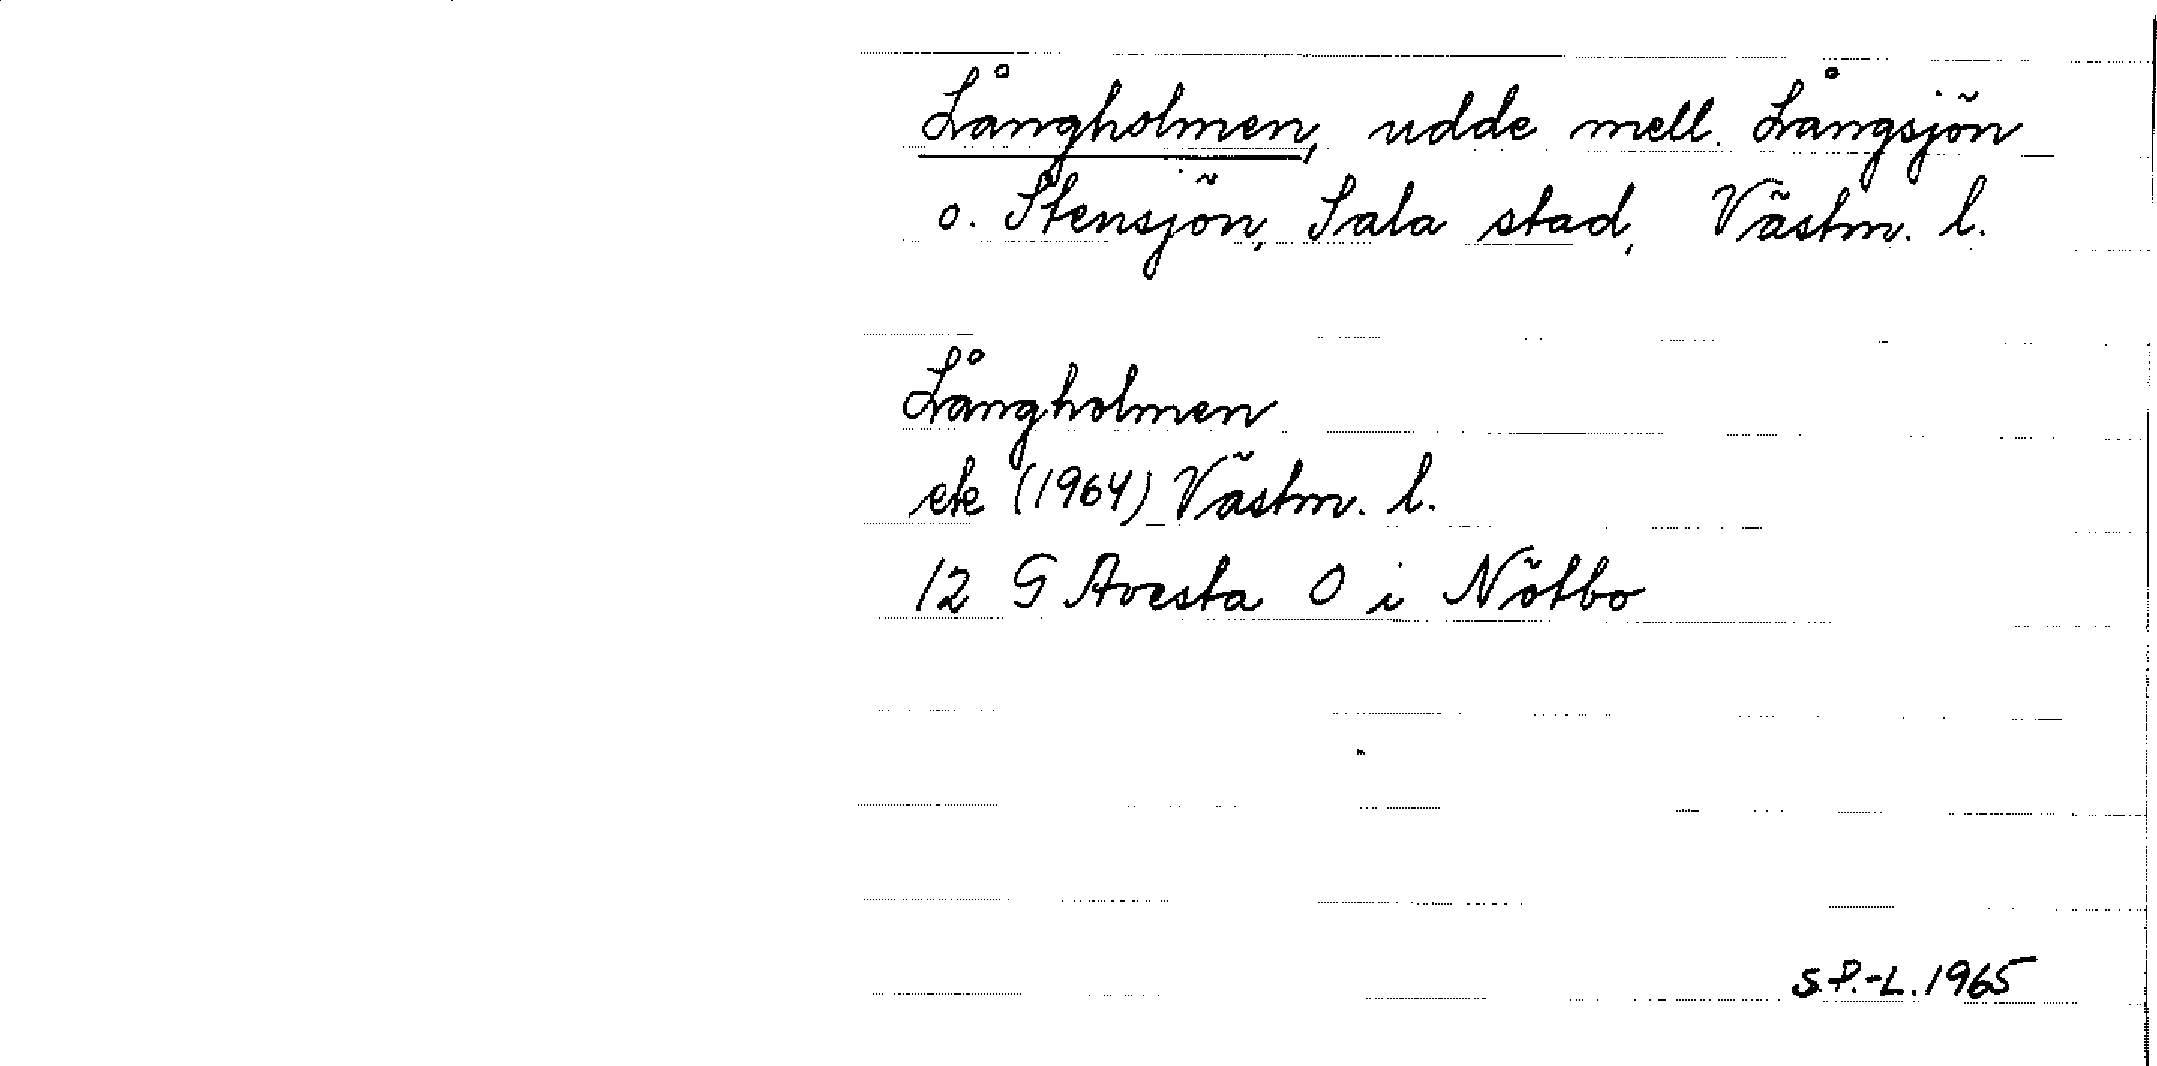 Långholmen, udde mell. Långsjön
o. Stensjön, Sala stad, Västm. l.
Långholmen
ek (1964) Västm. l.
12 G Avesta O i Nötbo
S.P.-L. 1965